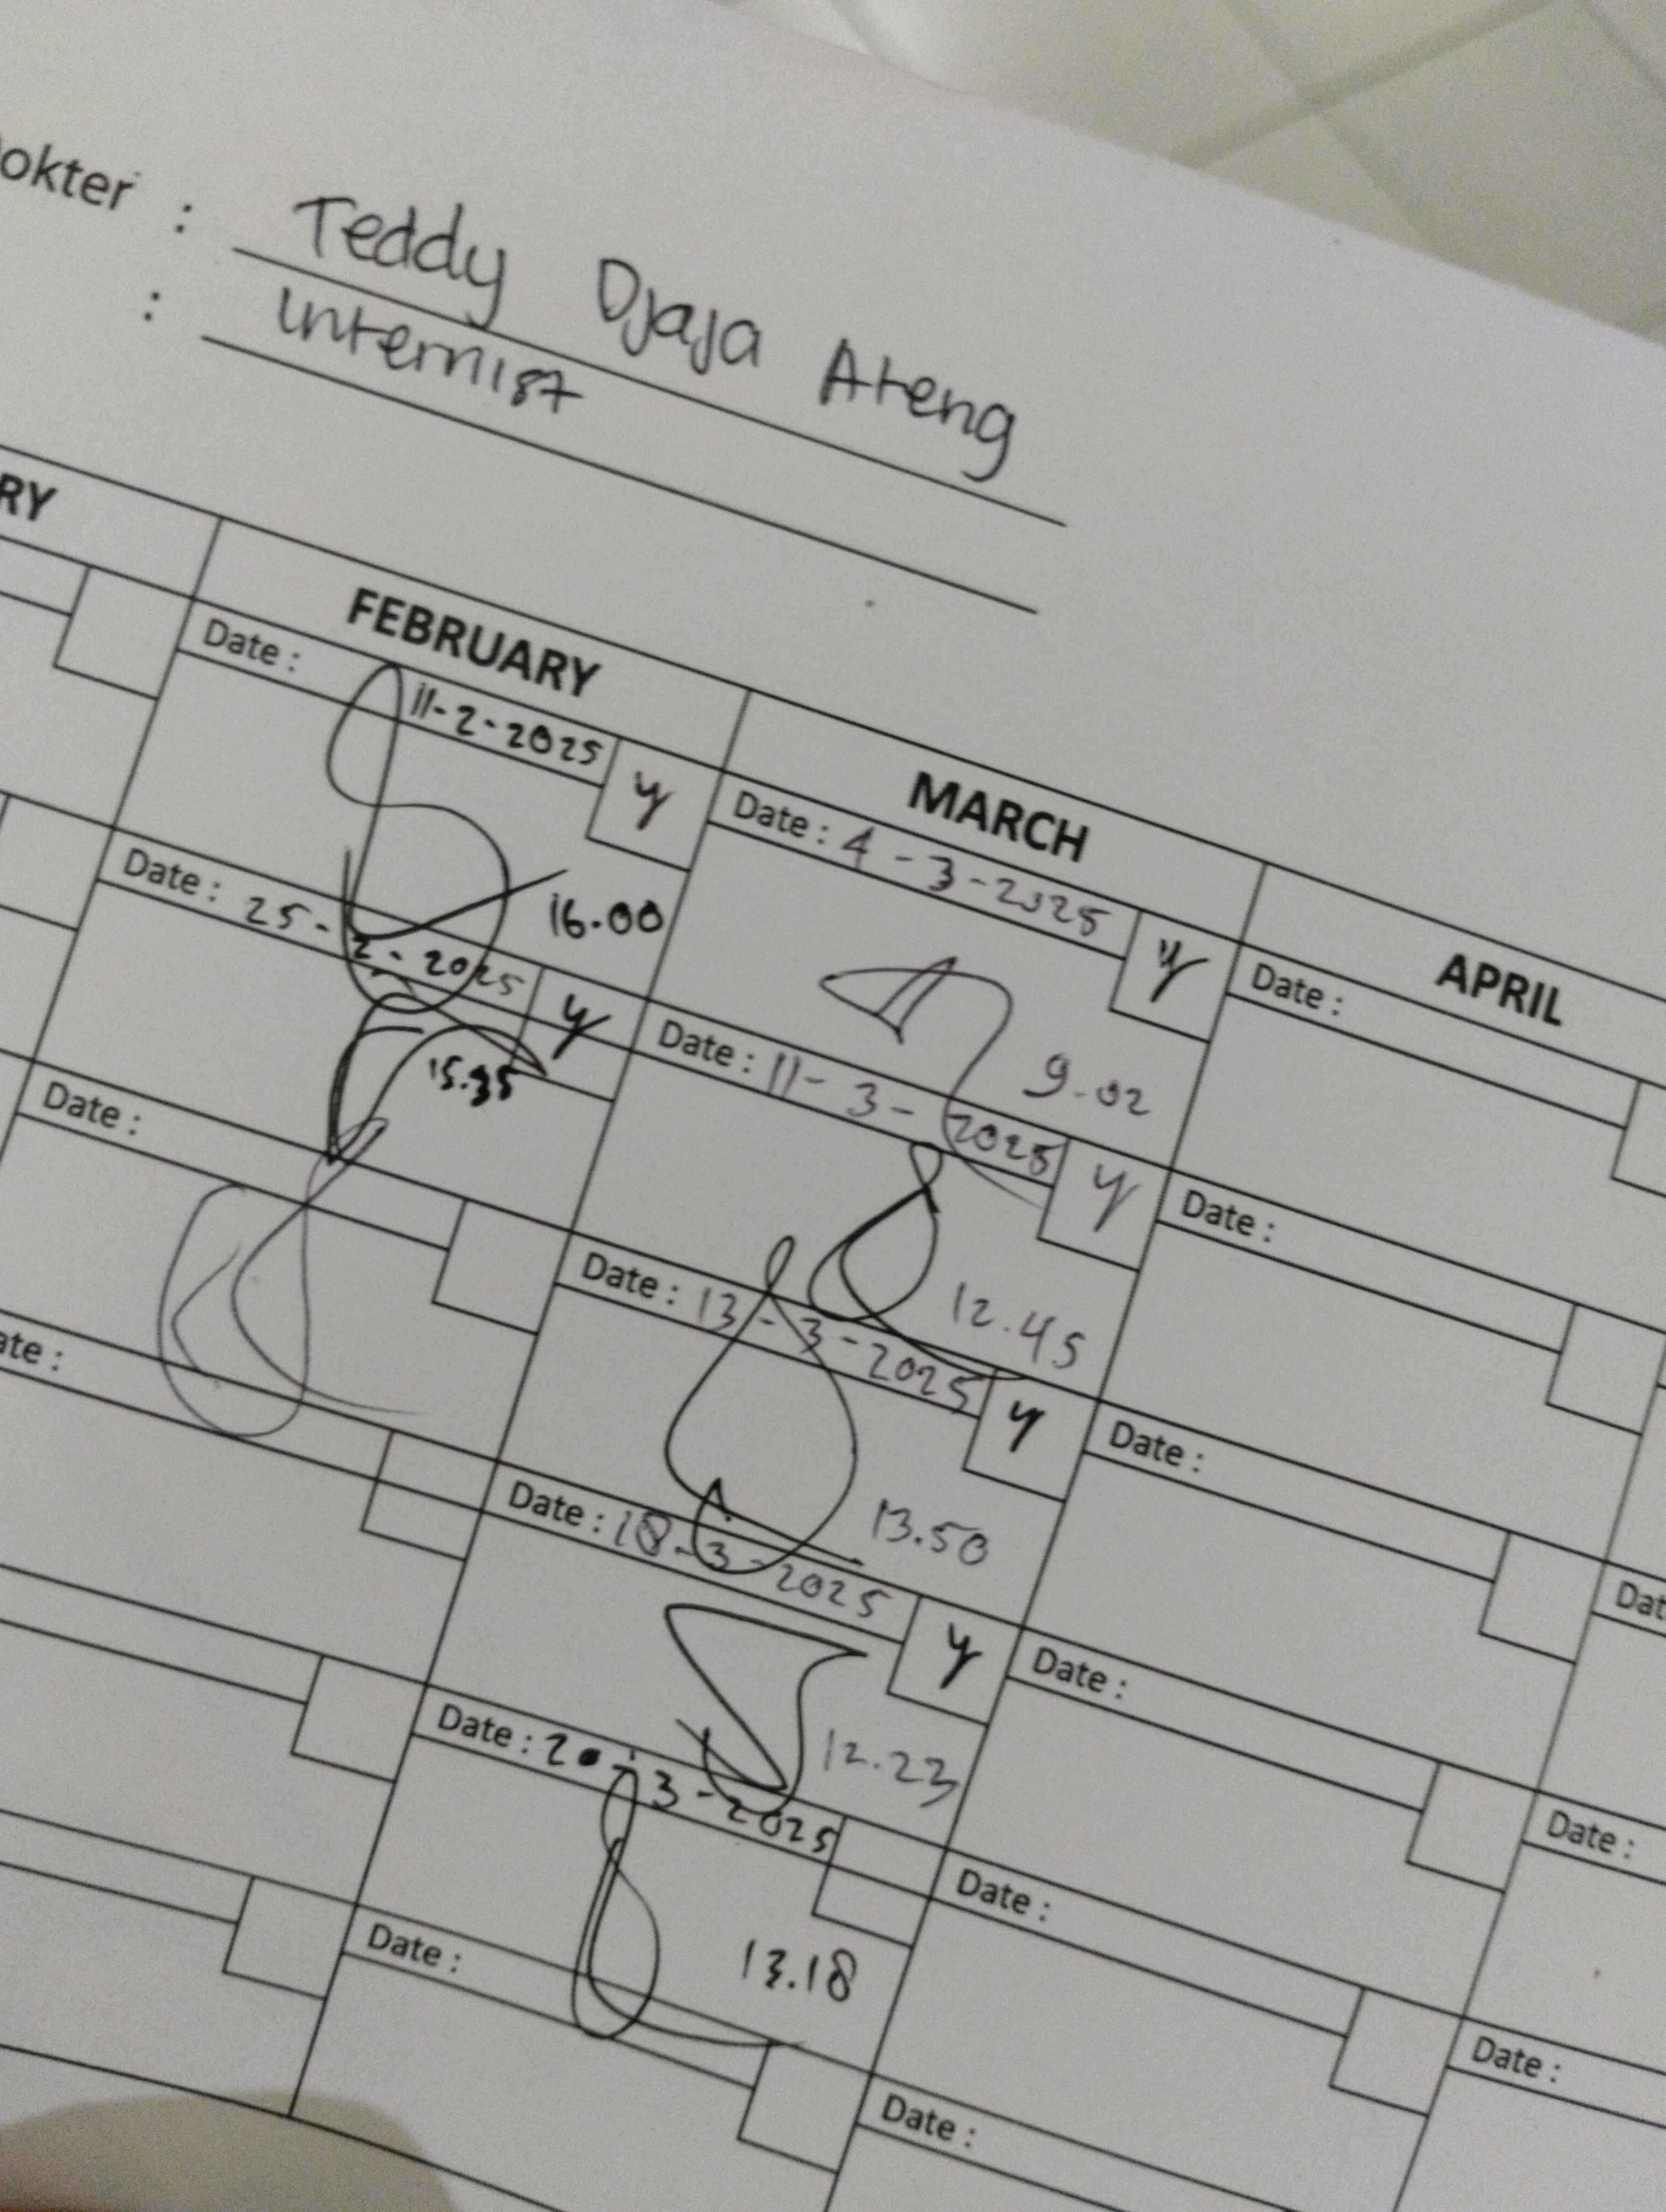 okter : Teddy Djaja Ateng
: Internist
RY
FEBRUARY
MARCH
APRIL
Date : 11-2-2025 y
16.00
Date : 25-2-2025 y
15.35
Date :
ate :
Date : 4-3-2025 y
9.02
Date : 11-3-2025 y
12.45
Date : 13-3-2025 y
13.50
Date : 18-3-2025 y
12.23
Date : 20-3-2025
13.18
Date :
Date :
Date :
Date :
Date :
Date :
Date :
Dat
Date :
Date :